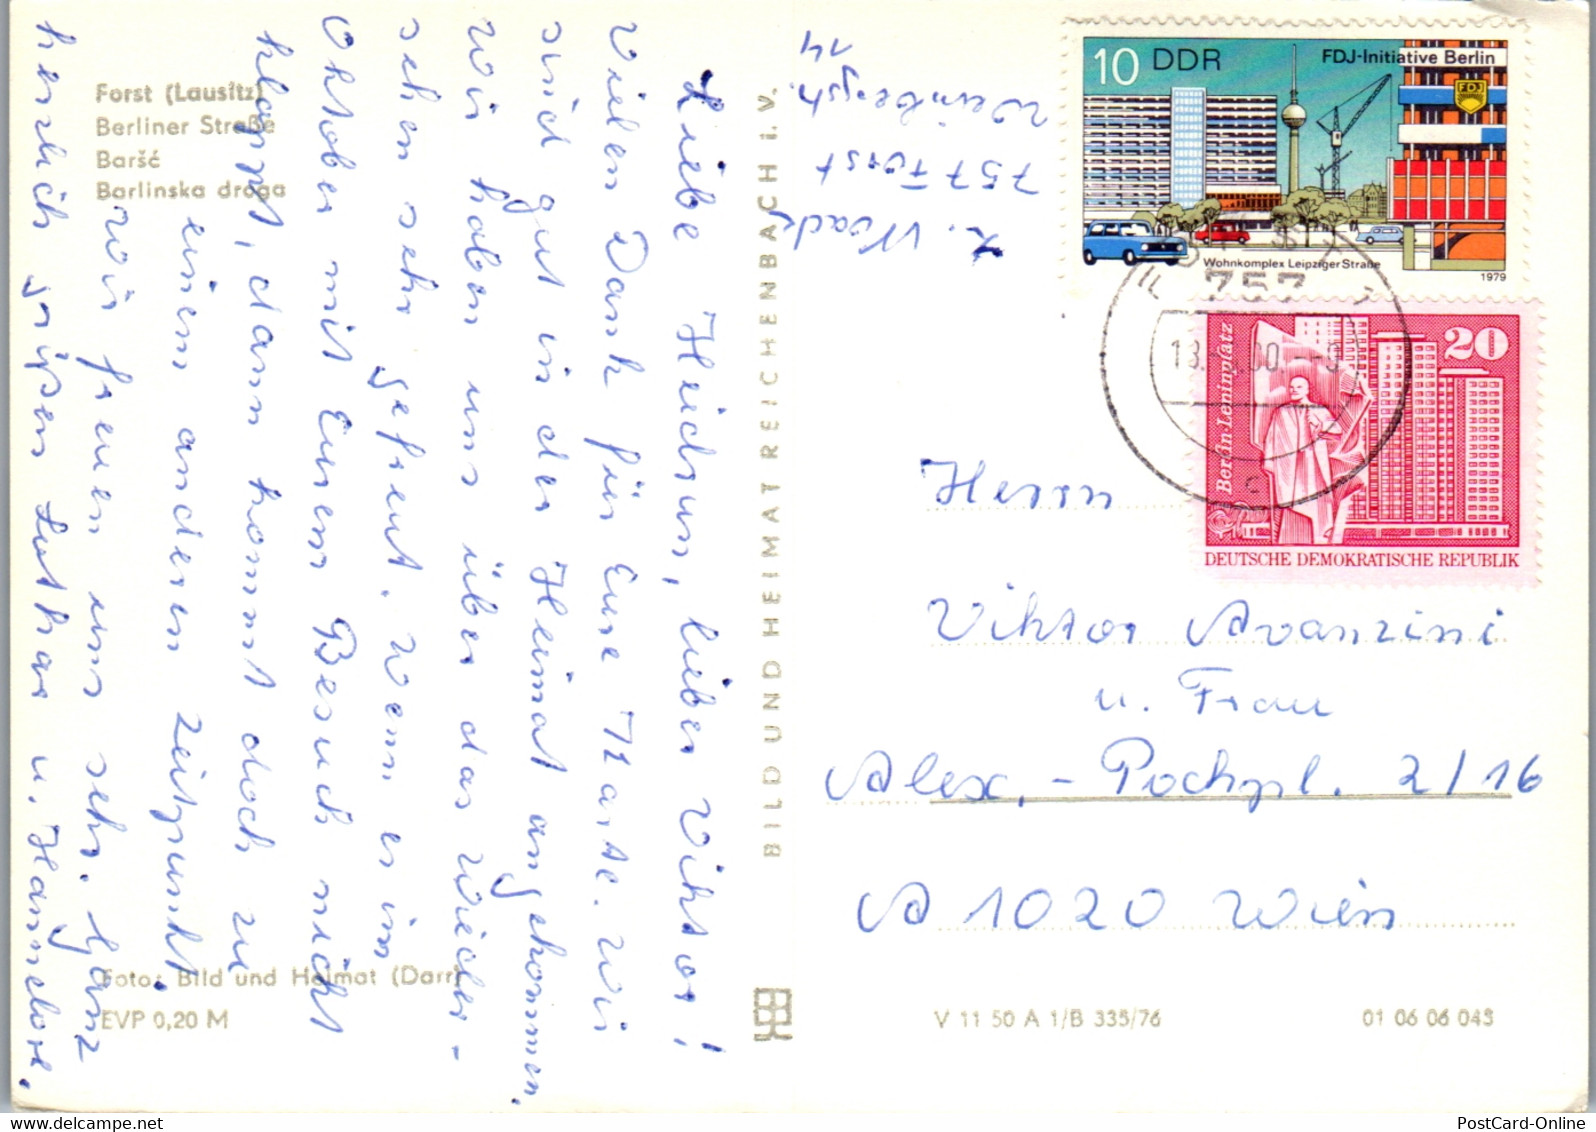 Forst (Lausitz)
Berliner Straße
Baršć
Barlinska droga
Liebe Heidrun, lieber Viktor!
Vielen Dank für Eure Karte. Wir
sind gut in der Heimat angekommen.
Wir haben uns über das Wieder-
sehen sehr gefreut. Wenn es im
Oktober mit Eurem Besuch nicht
klappt, dann kommt doch zu
einem anderen Zeitpunkt.
Wir freuen uns sehr. Ganz
herzlich grüßen Lothar u. Hannelore.
Foto: Bild und Heimat (Darr)
EVP 0,20 M
BILD UND HEIMAT REICHENBACH I. V.
L. Noack
757 Forst
Weinbergstr.
14
10 DDR
FDJ-Initiative Berlin
FDJ
Wohnkomplex Leipziger Straße
1979
757
c
20
Berlin-Leninplatz
DEUTSCHE DEMOKRATISCHE REPUBLIK
Herrn
Viktor Avanzini
u. Frau
Alex.-Pochpl. 2/16
A 1020 Wien
V 11 50 A 1/B 335/76
01 06 06 043
PostCard-Online